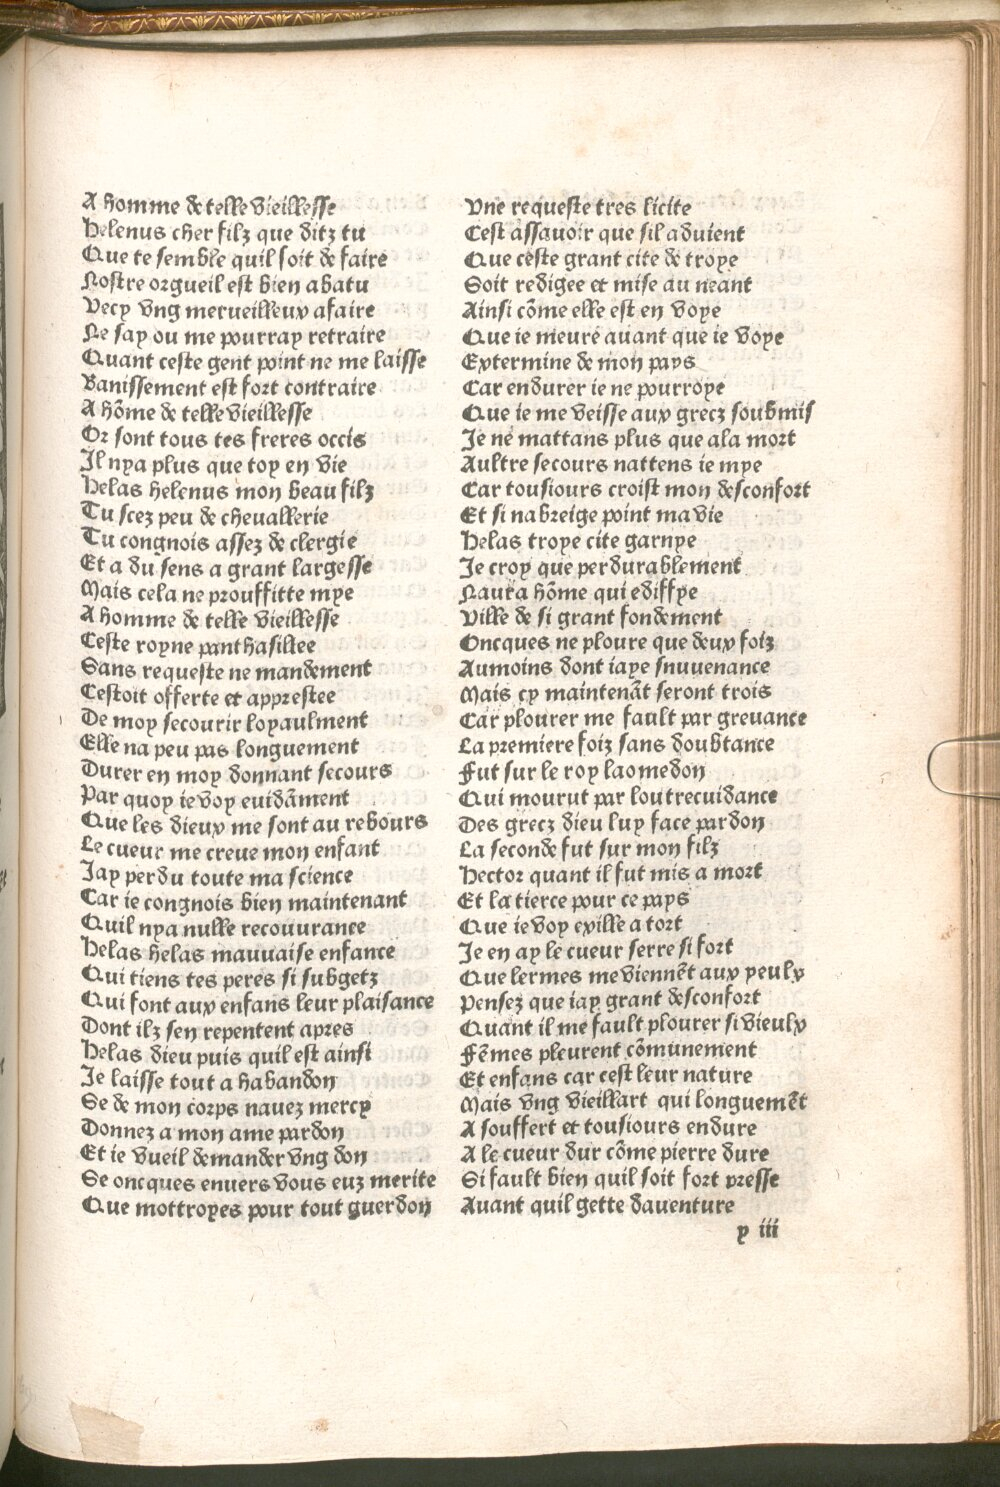 A homme de telle vieillesse
Helenus cher filz que ditz tu
Que te semble quil soit de faire
Nostre orgueil est bien abatu
Vecy vng merueilleux afaire
Ne say ou me pourray retraire
Quant ceste gent point ne me laisse
Banissement est fort contraire
A hōme de telle vieillesse
Or sont tous tes freres occis
Il nya plus que toy en vie
Helas helenus mon beau filz
Tu scez peu de chevallerie
Tu congnois assez de clergie
Et a du sens a grant largesse
Mais cela ne prouffitte mye
A homme de telle vieillesse
Ceste royne panthasillee
Sans requeste ne mandement
Cestoit offerte et apprestee
De moy secourir loyaulment
Elle na peu pas longuement
Durer en moy donnant secours
Par quoy ie voy euidāment
Que les dieux me sont au rebours
Le cueur me creue mon enfant
Jay perdu toute ma science
Car ie congnois bien maintenant
Quil nya nulle recouurance
Helas helas mauuaise enfance
Qui tiens tes peres si subgetz
Qui font aux enfans leur plaisance
Dont ilz sen repentent apres
Helas dieu puis quil est ainsi
Je laisse tout a habandon
Se de mon corps nauez mercy
Donnez a mon ame pardon
Et ie vueil demander vng don
Se oncques enuers vous euz merite
Que mottroyes pour tout guerdon
Vne requeste tres licite
Cest assauoir que sil aduient
Que ceste grant cite de troye
Soit redigee et mise au neant
Ainsi cōme elle est en voye
Que ie meure auant que ie voye
Extermine de mon pays
Car endurer ie ne pourroye
Que ie me veisse aux grecz soubmis
Je ne mattans plus que ala mort
Aultre secours nattens ie mye
Car tousiours croist mon desconfort
Et si nabreige point ma vie
Helas troye cite garnye
Je croy que perdurablement
Naura hōme qui ediffye
Ville de si grant fondement
Oncques ne ploure que deux foiz
Aumoins dont iaye snuuenance
Mais cy maintenāt seront trois
Car plourer me fault par greuance
La premiere foiz sans doubtance
Fut sur le roy laomedon
Qui mourut par loutrecuidance
Des grecz dieu luy face pardon
La seconde fut sur mon filz
Hector quant il fut mis a mort
Et la tierce pour ce pays
Que ie voy exille a tort
Je en ay le cueur serre si fort
Que lermes me viennēt aux yeulx
Pensez que iay grant desconfort
Quant il me fault plourer si vieulx
Fēmes pleurent cōmunement
Et enfans car cest leur nature
Mais vng vieillart qui longuemēt
A souffert et tousiours endure
A le cueur dur cōme pierre dure
Si fault bien quil soit fort presse
Auant quil gette dauenture
y iii